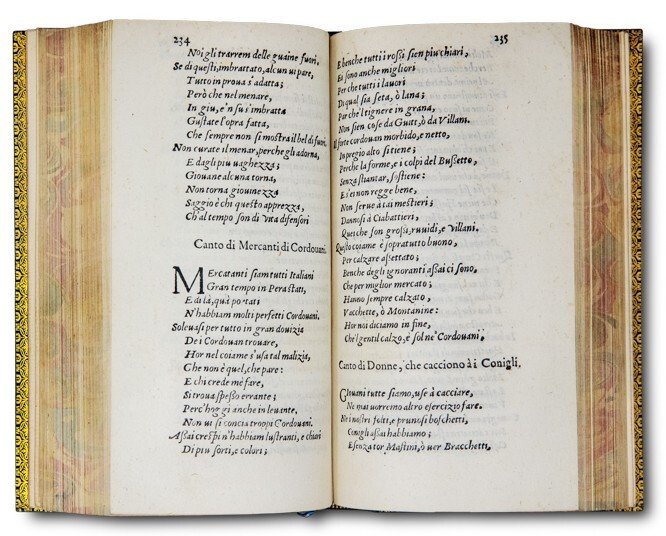 234
Noi gli trarrem delle guaine fuori,
Se di questi, imbrattato, alcun vi pare,
Tutto in prova s'adatta;
Però che nel menare,
In giu, e'n su s'imbratta
Gustate l'opra fatta,
Che sempre non si mostra il bel di fuori,
Non curate il menar, perche gli adorna,
E dagli piu vaghezza;
Giovane alcuna torna,
Non torna giovinezza
Saggio è chi questo apprezza,
Ch'al tempo son di vita difensori
Canto di Mercanti di Cordouani.
Mercatanti siam tutti Italiani
Gran tempo in Pera stati,
E di là, quà portati
N'habbiam molti perfetti Cordouani.
Soleuasi per tutto in gran douizia
De i Cordouan trouare,
Hor nel coiame s'usa tal malizia,
Che non è quel, che pare:
E chi crede me fare,
Si troua spesso errante;
Perc'hoggi anche in leuante,
Non vi si concia troppi Cordouani.
Assai crespi n'habbiam lustranti, e chiari
Di piu sorti, e colori;
235
E benche tutti i rossi sien piu chiari,
Ei sono anche migliori
Per che tutti i lauori
Di qual sia seta, ò lana;
Par che'l tignere in grana,
Non sien cose da Guitt, ò da Villani.
Il forte cordouan morbido, e netto,
In pregio alto si tiene;
Perche la forme, e i colpi del Bussetto,
Senza stiantar, sostiene:
E s'ei non regge bene,
Non serue à tai mestieri;
Dannosi à Ciabattieri,
Quei che son grossi, ruuidi, e villani.
Questo coiame è sopratutto buono,
Per calzare assettato;
Benche degli ignoranti assai ci sono,
Che per miglior mercato;
Hanno sempre calzato,
Vacchette, ò Montanine:
Hor noi diciamo in fine,
Che'l gentil calzo, è sol nè Cordouani.
Canto di Donne, che cacciono à i Conigli.
Giouani tutte siamo, use à cacciare,
Ne mai vorremo altro esercizio fare.
Ne i nostri folti, e prunosi boschetti,
Conigli assai habbiamo;
E senza tor Mastini, ò ver Bracchetti,